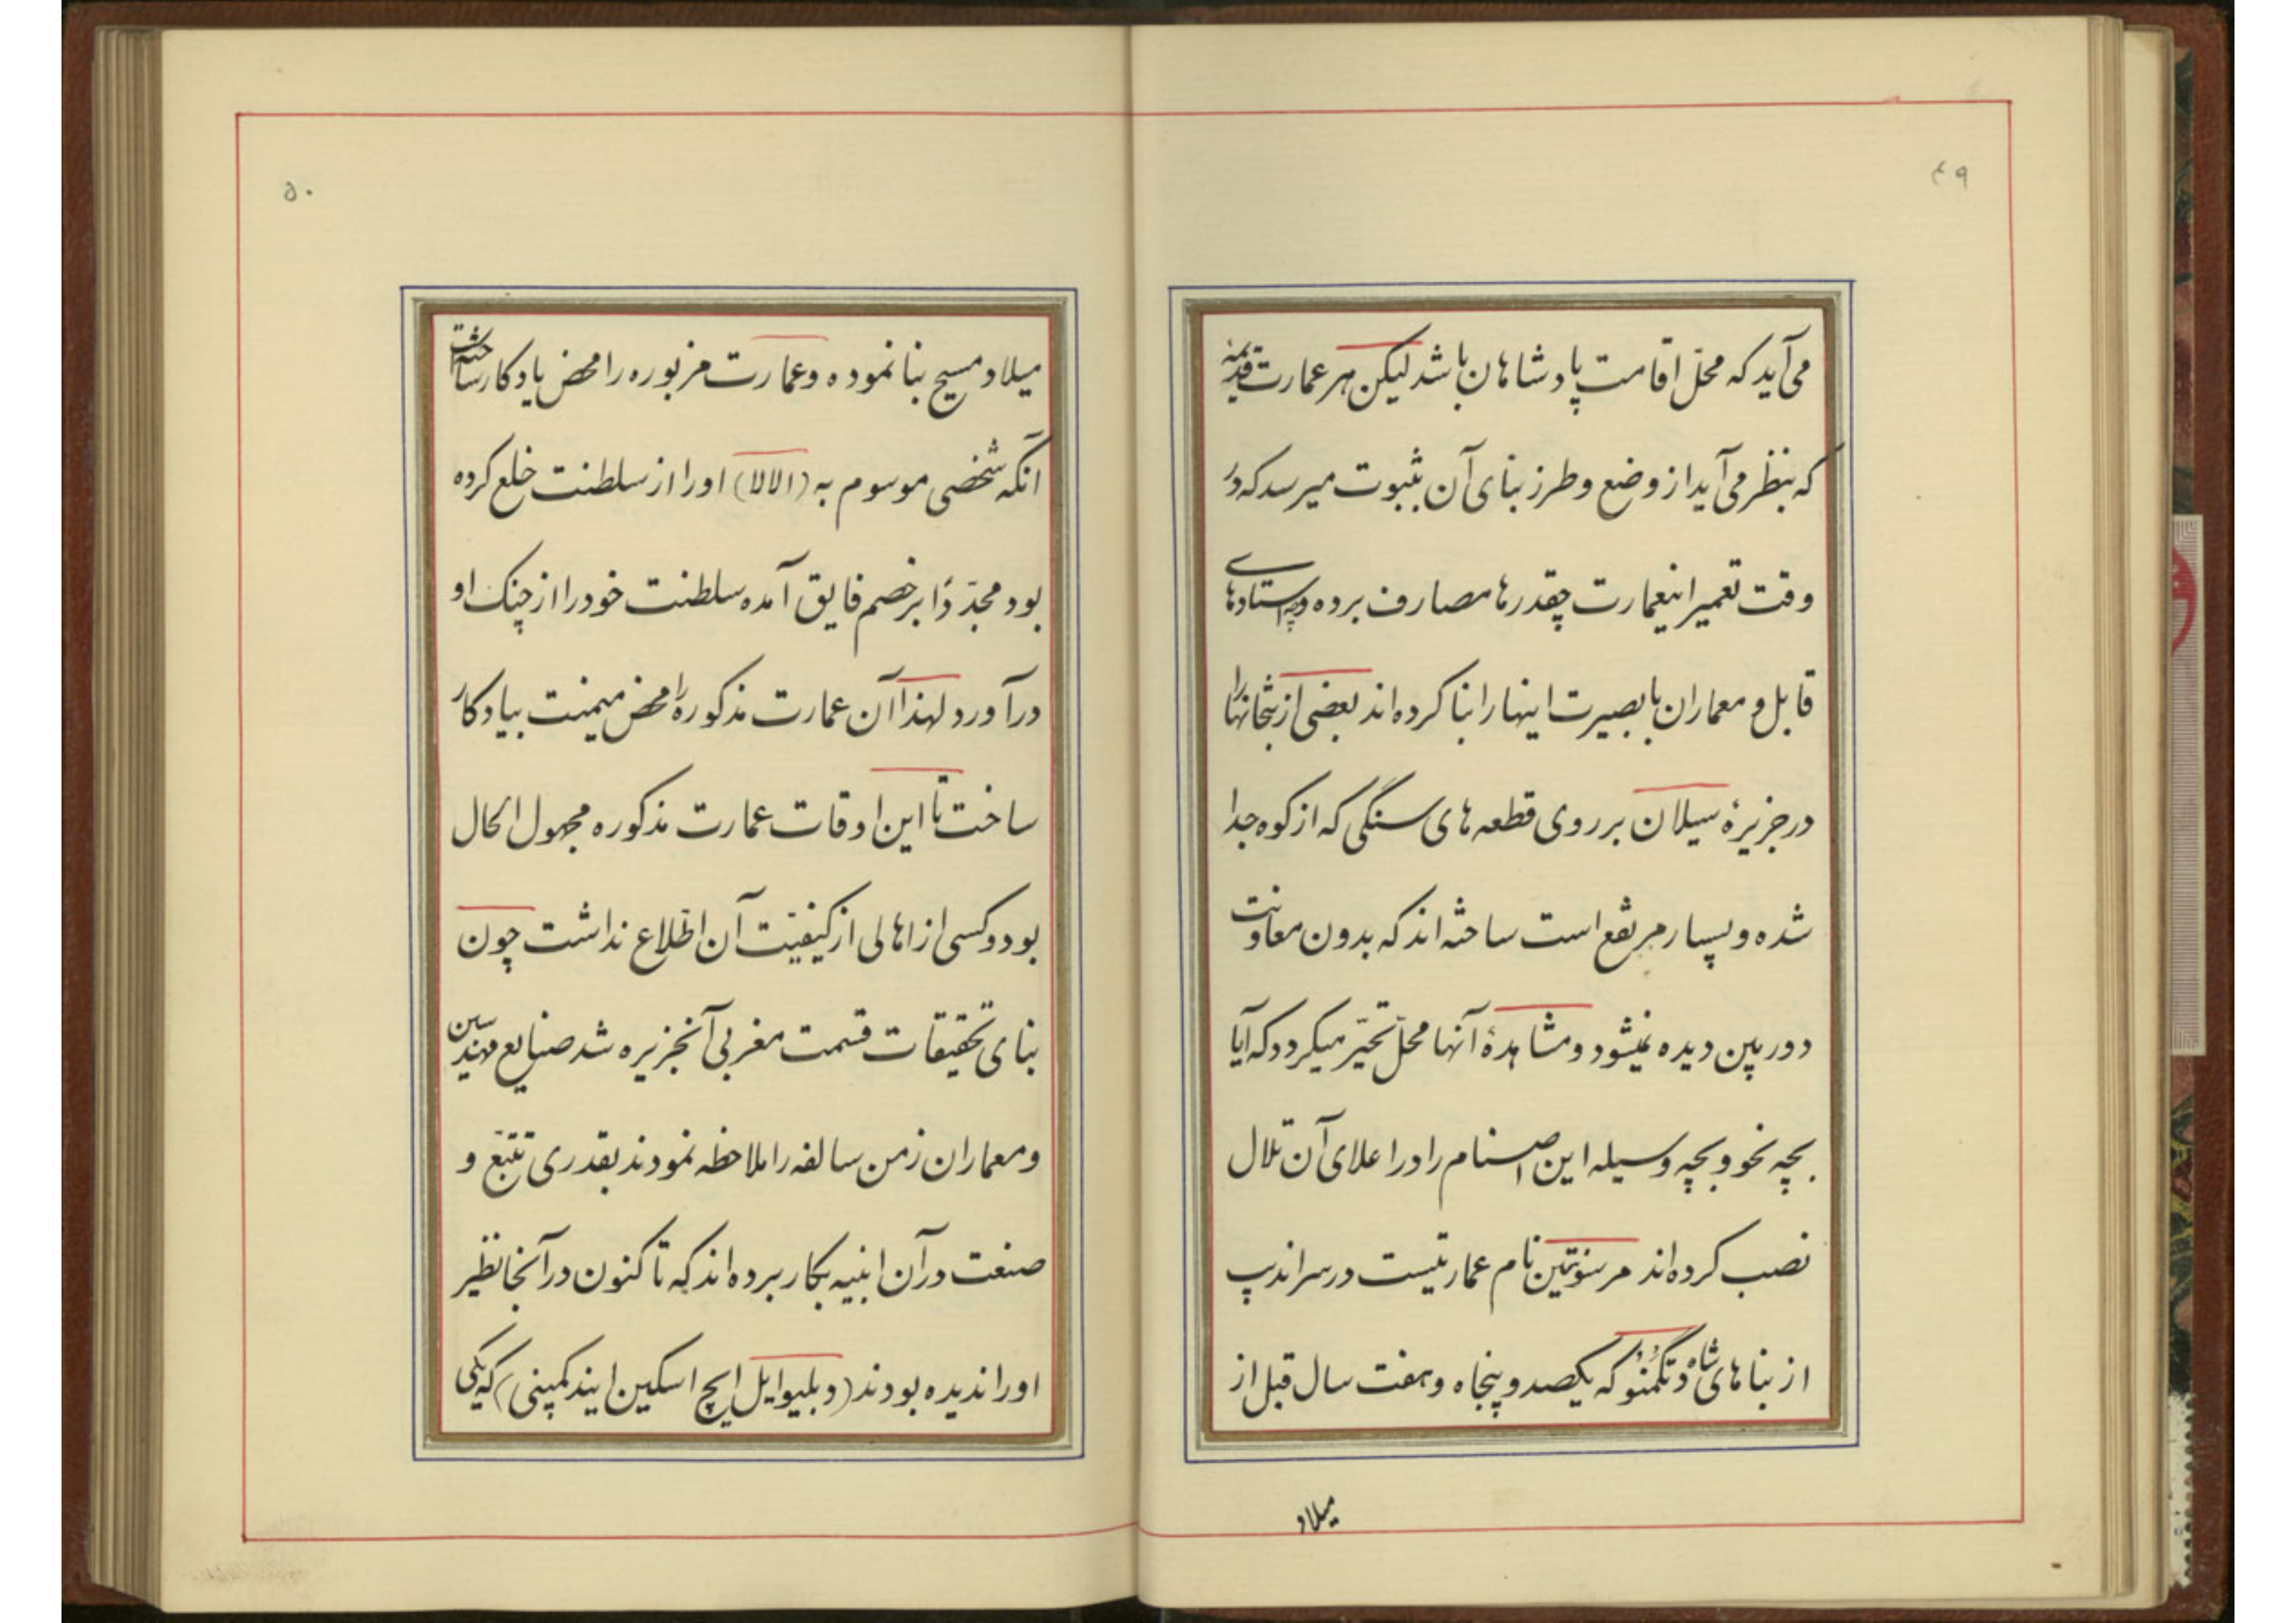 ۴۹
می‌آید که محلّ اقامت پادشاهان باشد لیکن هر عمارت قدیمه
که بنظر می‌آید از وضع و طرز بنای آن بثبوت میرسد که در
وقت تعمیر اینعمارت چقدرها مصارف برده و چه استادهای
قابل و معماران با بصیرت اینها را بنا کرده‌اند بعضی از بتخانها را
در جزیرهٔ سیلان بر روی قطعه های سنگی که از کوه جدا
شده و بسیار مرتفع است ساخته‌اند که بدون معاونت
دوربین دیده نمیشود و مشاهدهٔ آنها محلّ تحیّر میکردد که آیا
بچه نحو و بچه وسیله این اصنام را در اعلای آن تلال
نصب کرده‌اند نام عمارتیست در سراندیب
از بناهای شاه که یکصد و پنجاه و هفت سال قبل از
میلاد
۵۰
میلاد مسیح بنا نموده و عمارت مزبوره را محض یادکار ساخته
آنکه شخصی موسوم به (الالا) او را از سلطنت خلع کرده
بود مجدّدًا بر خصم فایق آمده سلطنت خود را از چنک او
درآورد لهذا آن عمارت مذکوره را محض میمنت بیادکار
ساخت تا این اوقات عمارت مذکوره مجهول الحال
بود و کسی از اهالی از کیفیّت آن اطّلاع نداشت چون
بنای تحقیقات قسمت مغربی آنجزیره شد صنایع مهندسین
و معماران زمن سالفه را ملاحظه نمودند بقدری تتبّع و
صنعت در آن ابنیه بکار برده‌اند که تا کنون در آنجا نظیر
او را ندیده بودند (دبلیو ایل ایچ اسکین ایند کمپنی) که یکی